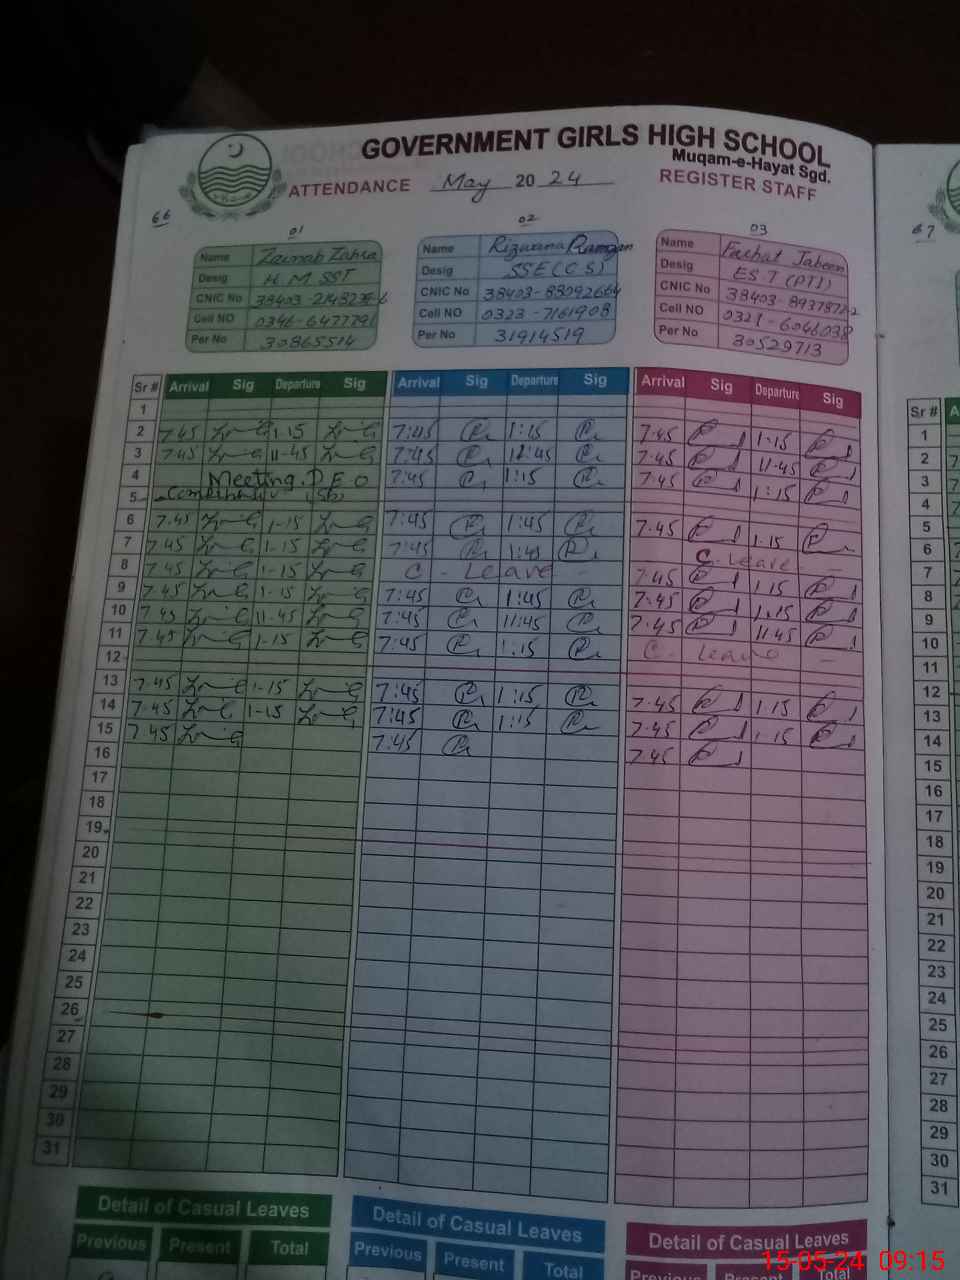 GOVERNMENT GIRLS HIGH SCHOOL
Muqam-e-Hayat Sgd.
ATTENDANCE May 2024 REGISTER STAFF
66
67
01
Name Zainab Zahra
Desig H.M.SST
CNIC No
Cell NO
Per No 30865514
02
Name Rizwana Ramzan
Desig SSE(C.S)
CNIC No 38403-88092664
Cell NO 0323-7161908
Per No 31914519
03
Name Farhat Jabeen
Desig ES.T (PTI)
CNIC No
Cell NO 0321-6046038
Per No 30529713
Sr # Arrival Sig Departure Sig Arrival Sig Departure Sig Arrival Sig Departure Sig Sr #
1
2 7.45 1.15 7:45 1:15 7.45 1.15
3 7.45 11-45 7:45 7.45 11.45
4 Meeting D E O 7:45 1:15 7.45 1:15
5
6 7.45 1-15 7:45 1:45 7.45 1.15
7 7.45 1-15 7:45 1:45 C. Leave
8 7.45 1-15 C - Leave 7.45 1.15
9 7.45 1-15 7:45 1:45 7.45 1.15
10 7.45 11-45 7:45 11:45 7.45 11.45
11 7.45 1-15 7:45 1:15 C. Leave
12
13 7.45 1-15 7:45 1:15 7.45 1.15
14 7.45 1-15 7:45 1:15 7.45 1.15
15 7.45 7:45 7.45
16
17
18
19
20
21
22
23
24
25
26
27
28
29
30
31
1
2
3
4
5
6
7
8
9
10
11
12
13
14
15
16
17
18
19
20
21
22
23
24
25
26
27
28
29
30
31
Detail of Casual Leaves Detail of Casual Leaves Detail of Casual Leaves
Previous Present Total Previous Present Total Previous Present Total
15-05-24 09:15